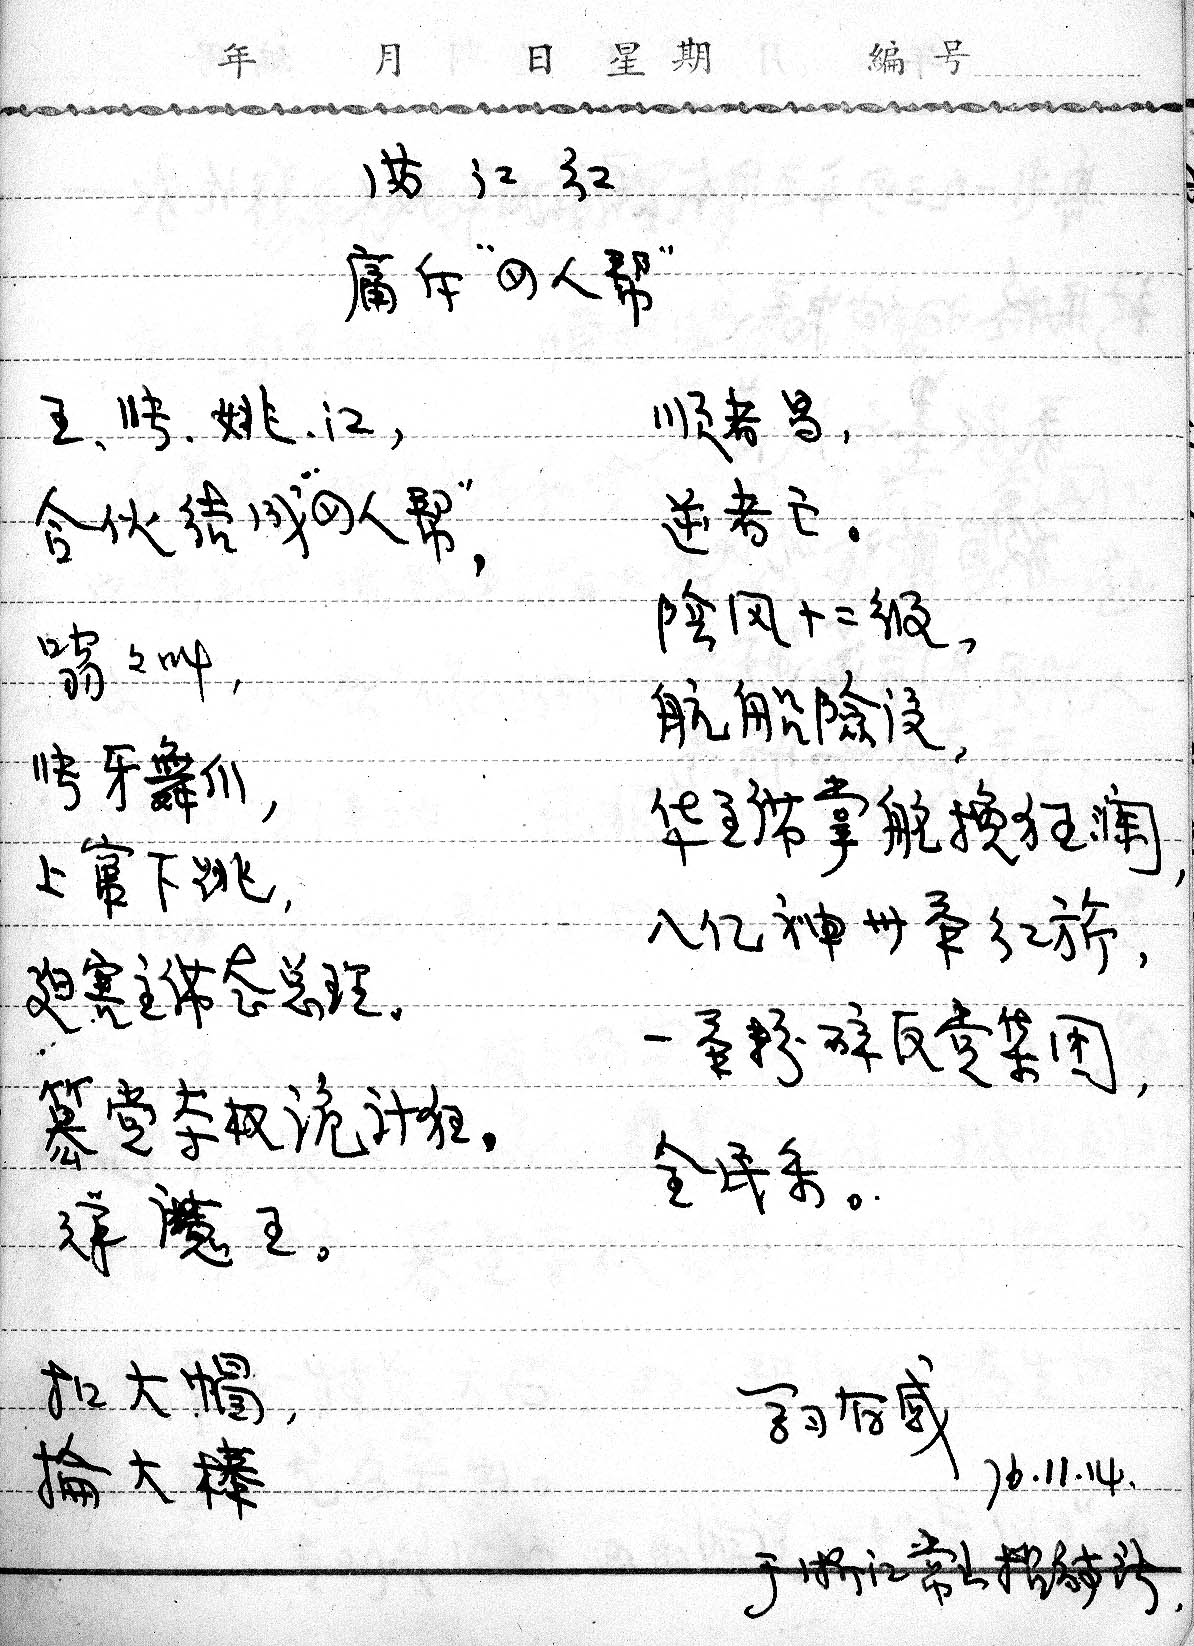 年 月 日 星期 編号
满江红
痛斥“四人帮”
王、张、姚、江，
合伙结成“四人帮”，
嗡々叫，
张牙舞爪，
上窜下跳，
迫害主席忿总理。
篡党夺权诡计狂。
混魔王。
扣大帽，
抡大棒
顺者昌，
逆者亡。
阴风十二级，
航船险没，
华主席掌舵挽狂澜，
八亿神州举红旂，
一举粉碎反党集团，
全民乐。
学习有感
76.11.14.
于浙江常山招待所，